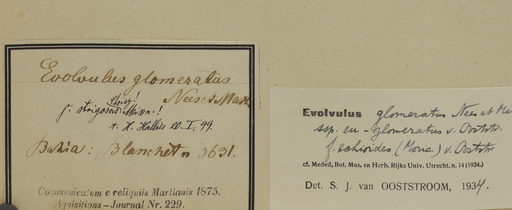 Evolvulus glomeratus
Nees et Mart
strigosus
H. Hallier 20. I. 99.
Bahia: Blanchet n 3631.
Communicatum e reliquiis Martianis 1875.
Aquisitions-Journal Nr. 229.
Evolvulus glomeratus Nees et Mar
ssp. eu-glomeratus v. Ooststr.
f. echioides (Moric.) v. Ooststr.
cf. Meded. Bot. Mus. en Herb. Rijks Univ. Utrecht, n. 14 (1934.)
Det. S. J. van OOSTSTROOM, 1934.